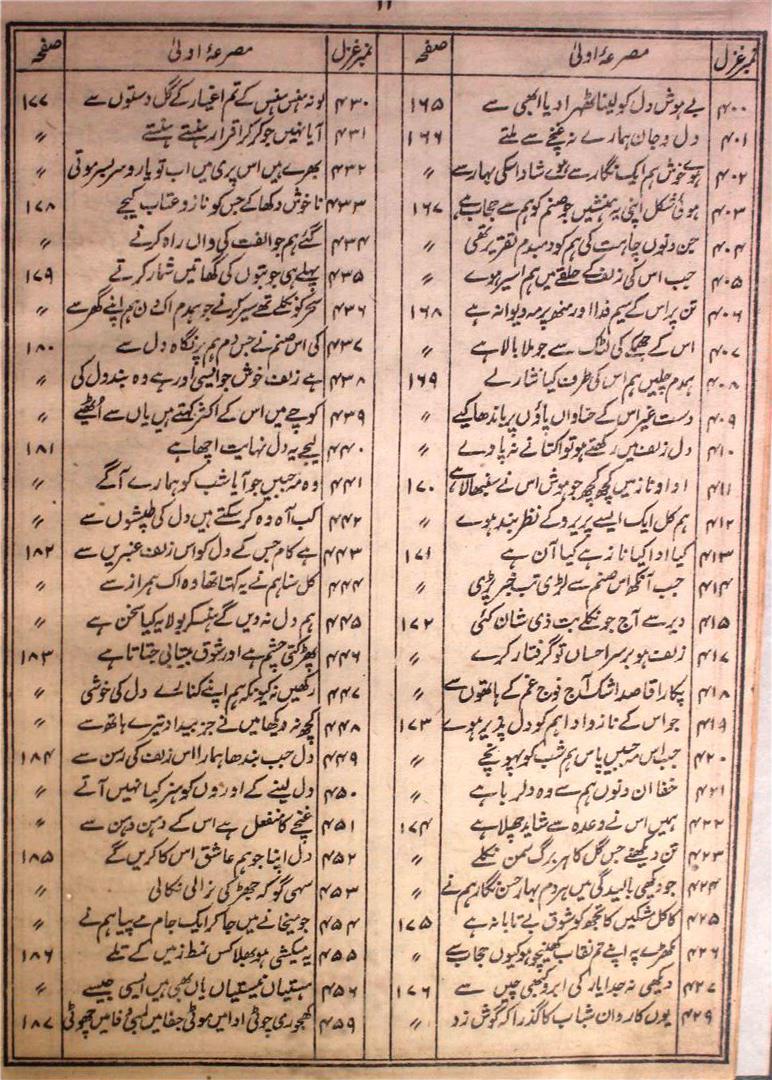 ۱۱
نمبر غزل مصرعۂ اولیٰ صفحہ
۴۰۰ بے ہوش دل کو لینا ٹھہرا دیا ابھی سے ۱۶۵
۴۰۱ دل و جان ہمارے نہ غنچے سے ملتے ۱۶۶
۴۰۲ ہوے خوش ہم ایک نگار سے ہوے شاد اسکی بہار سے 〃
۴۰۳ ہو شکل اپنی یہ ہمنشیں جو صنم کو ہم سے حجاب ہے ۱۶۷
۴۰۴ جن دنوں چاہت کی ہم کو دمبدم تقریر تھی 〃
۴۰۵ جب اس کی زلف کے حلقے میں ہم اسیر ہوے 〃
۴۰۶ تن پر اس کے سیم فدا اور منھ پر مہ دیوانہ ہے ۱۶۸
۴۰۷ اس کے جھمکے کی لٹک سے جو ملا بالا ہے 〃
۴۰۸ ہمدم چلیں ہم اس کی طرف کیا نثار لے ۱۶۹
۴۰۹ دست غیر اس کے حنا واں پاؤں پر باندھا کیے 〃
۴۱۰ دل زلف میں رکھتے ہو تو اکتانے نہ پاوے 〃
۴۱۱ ادا و ناز میں کچھ کچھ جو ہوش اس نے سنبھالا ہے ۱۷۰
۴۱۲ ہم کل ایک ایسے پریرو کے نظر بند ہوے 〃
۴۱۳ کیا ادا کیا ناز ہے کیا آن ہے ۱۷۱
۴۱۴ جب آنکھ اس صنم سے لڑی تب خبر پڑی 〃
۴۱۵ دیر سے آج جو نکلے بت ذی شان کئی ۱۷۲
۴۱۷ زلف ہو برسر احساں تو گرفتار کرے 〃
۴۱۸ پکارا قاصد اشک آج فوج غم کے ہاتھوں سے 〃
۴۱۹ جو اس کے ناز و ادا ہم کو دل پذیر ہوے ۱۷۳
۴۲۰ جب اس مہ جبیں پاس ہم شب کو پہونچے 〃
۴۲۱ خفا ان دنوں ہم سے وہ دلربا ہے 〃
۴۲۲ ہمیں اس نے وعدہ سے شاید چھلا ہے ۱۷۴
۴۲۳ تن دیکھنے جس گل کا ہر برگ سمن نکلے 〃
۴۲۴ جو دیکھی بالیدگی میں ہردم بہار حسن نگار ہم نے 〃
۴۲۵ کاکل مشکیں کا تجھ کو شوق بے تابانہ ہے ۱۷۵
۴۲۶ مکھڑے پہ اپنے تم نقاب کھینچو ہو کیوں حجاب سے 〃
۴۲۷ دیکھی نہ جدا یار کی ابرو کبھی چیں سے ۱۷۶
۴۲۹ یوں کاروان شباب کا گذرا کہ گوش زد 〃
نمبر غزل مصرعۂ اولیٰ صفحہ
۴۳۰ لو نہ ہنس ہنس کے تم اغیار کے گل دستوں سے ۱۷۷
۴۳۱ آیا نہیں جو کر کر اقرار ہنستے ہنستے 〃
۴۳۲ بھرے ہیں اس پری میں اب تو یارو سربسر موتی 〃
۴۳۳ ناخوش دکھا کے جس کو ناز و عتاب کیجے ۱۷۸
۴۳۴ گئے ہم جو الفت کی واں راہ کرنے 〃
۴۳۵ پہلے ہی جو بتوں کی گھاتیں شمار کرتے ۱۷۹
۴۳۶ سحر کو نکلے تھے سیر کرنے جو ہمدم اک دن ہم اپنے گھر سے 〃
۴۳۷ کی اس صنم نے جس دم ہم پر نگاہ دل سے ۱۸۰
۴۳۸ ہے زلف خوش جو ایسی اور ہے وہ بند دل کی 〃
۴۳۹ کوچے میں اس کے اکثر کہتے ہیں یاں سے اٹھیے 〃
۴۴۰ لیجے یہ دل نہایت اچھا ہے ۱۸۱
۴۴۱ وہ مہ جبیں جو آیا شب کو ہمارے آگے 〃
۴۴۲ کب آہ وہ کر سکتے ہیں دل کی طپشوں سے 〃
۴۴۳ ہے کام جس کے دل کو اس زلف عنبریں سے ۱۸۲
۴۴۴ کل سنا ہم نے یہ کہتا تھا وہ اک ہمراز سے 〃
۴۴۵ ہم دل نہ دیں گے ہنسکر بولا یہ کیا سخن ہے 〃
۴۴۶ پھڑکتی چشم ہے اور شوق بیتابی جتاتا ہے ۱۸۳
۴۴۷ رکھیں نہ کیونکہ ہم اپنے کنارے دل کی خوشی 〃
۴۴۸ کچھ نہ دیکھا میں نے جز بیداد تیرے ہاتھ سے 〃
۴۴۹ دل جب بندھا ہمارا اس زلف کی رسن سے ۱۸۴
۴۵۰ دل لینے کے اوروں کو ہنر کیا نہیں آتے 〃
۴۵۱ غنچے کا منفعل ہے اس کے دہن دہن سے 〃
۴۵۲ دل اپنا جو ہم عاشق اس کا کریں گے ۱۸۵
۴۵۳ سہی گو کہ جھڑکی نرالی نکالی 〃
۴۵۴ جو میخانے میں جا کر ایک جام مے پیا ہم نے 〃
۴۵۵ یہ میکشی ہو بھلا کس نمط زمیں کے تلے ۱۸۶
۴۵۶ ہستیاں نیستیاں یاں بھی ہیں ایسی جیسے 〃
۴۵۹ کھجوری چوٹی ادا میں موٹی جفا میں لمبی وفا میں چھوٹی ۱۸۷